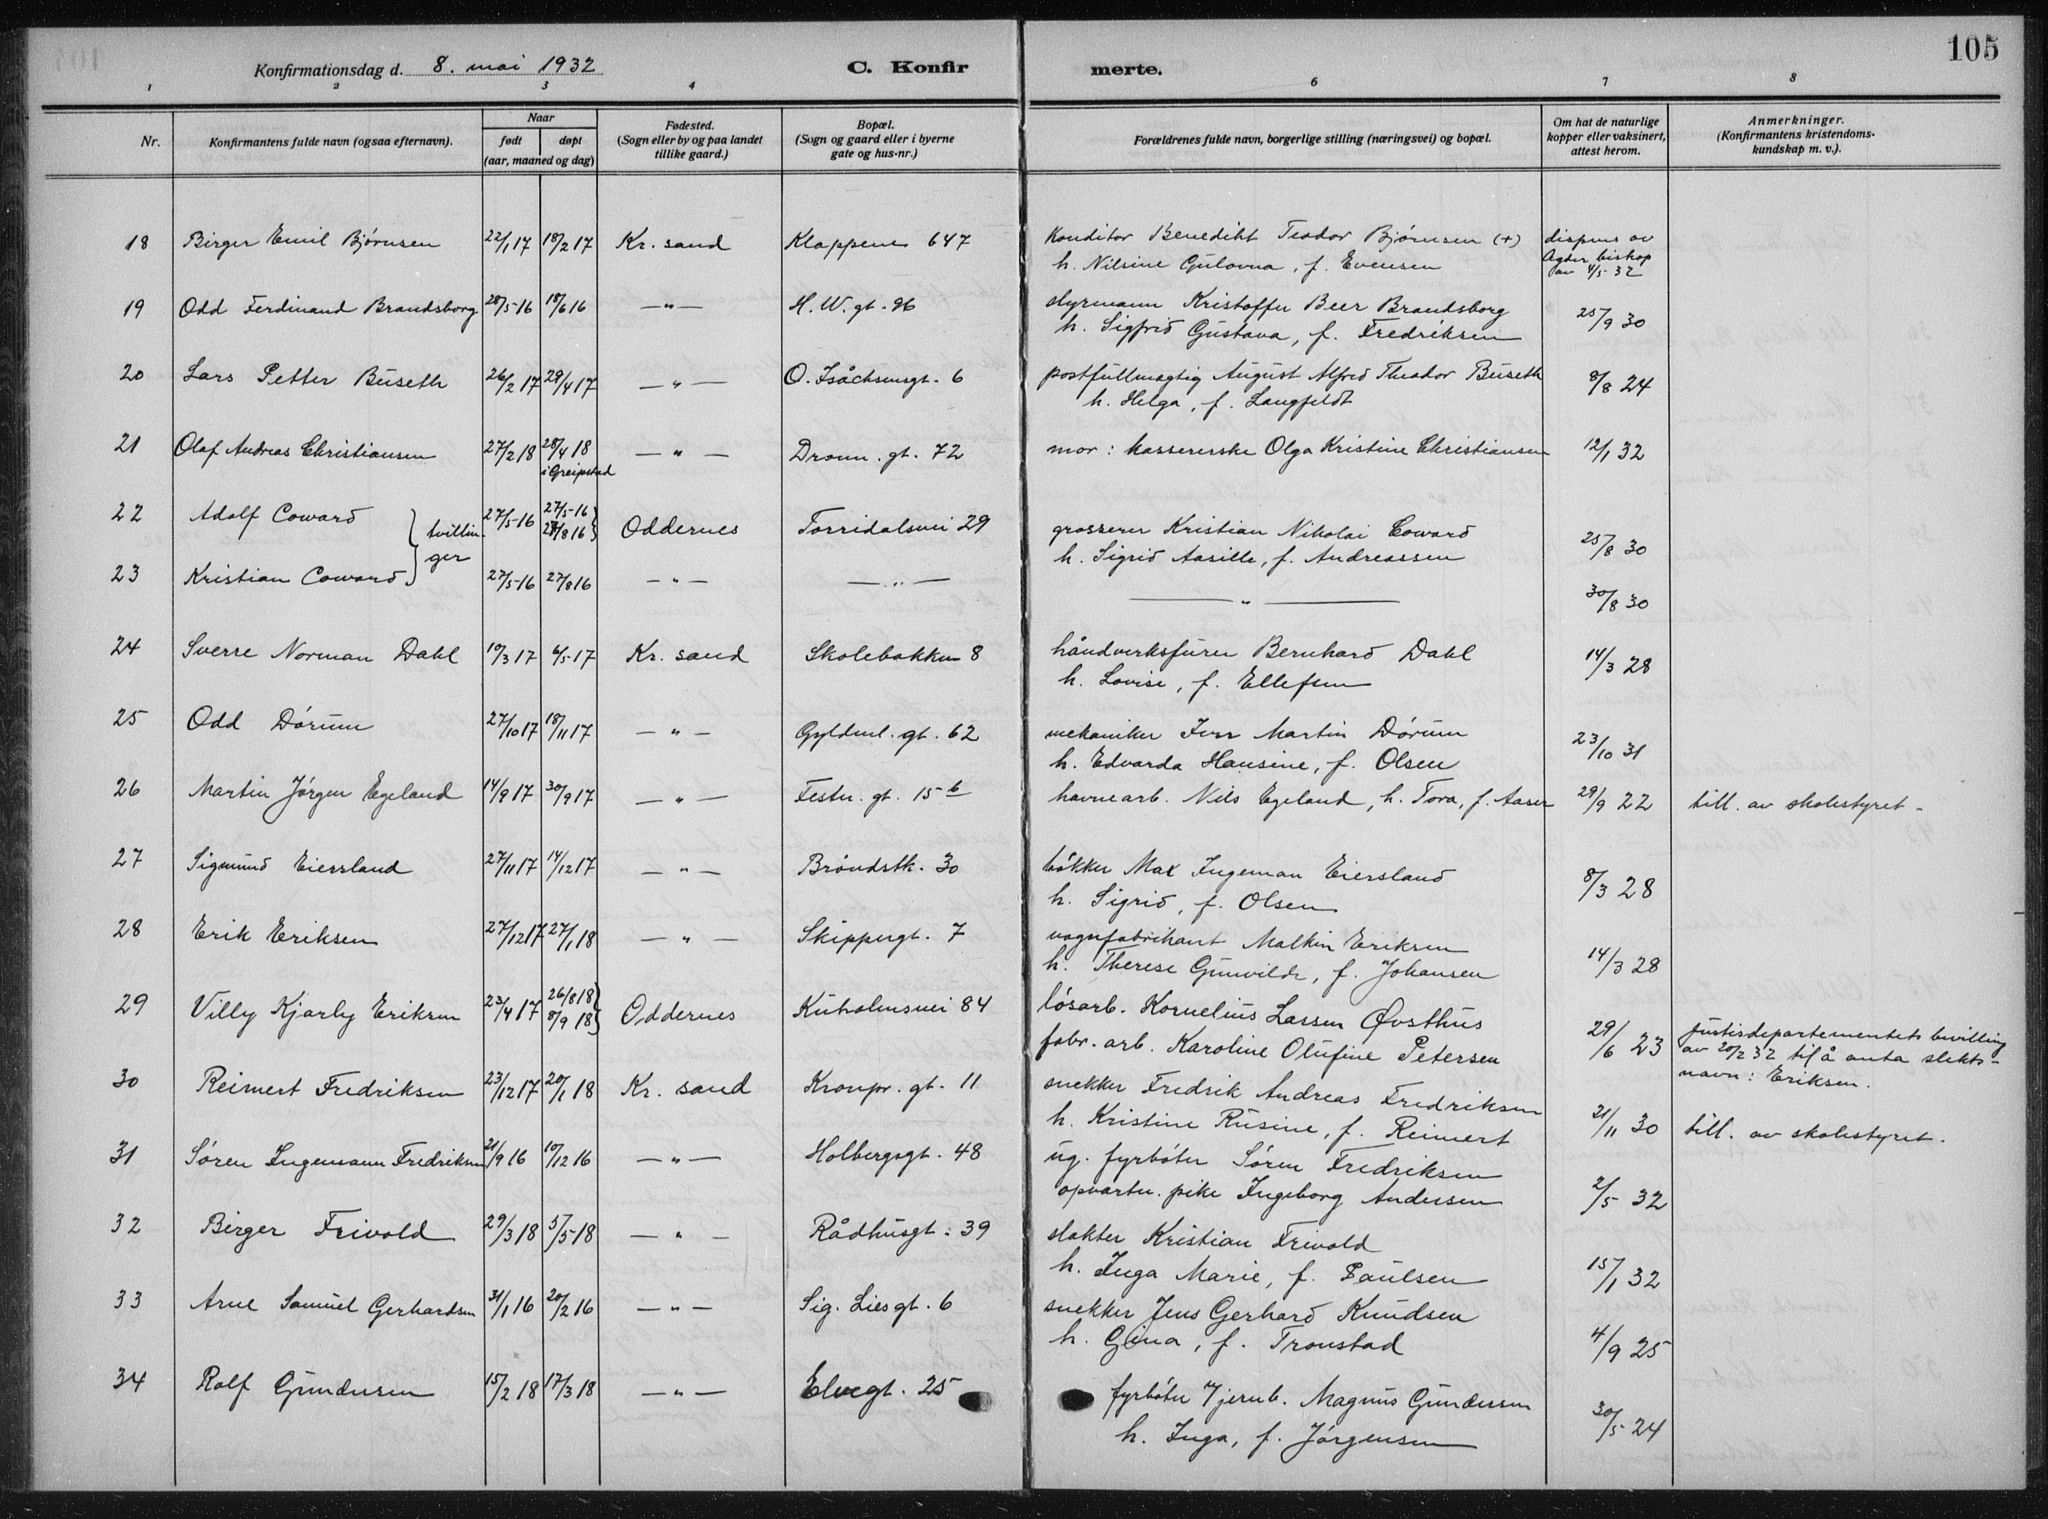 105
Konfirmationsdag d. 8. mai 1932 C. Konfir merte.
1 2 3 4 6 7 8
Nr. Konfirmantens fulde navn (ogsaa efternavn). Naar født døpt (aar, maaned og dag) Fødested. (Sogn eller by og paa landet tillike gaard.) Bopæl. (Sogn og gaard eller i byerne gate og hus-nr.) Forældrenes fulde navn, borgerlige stilling (næringsvei) og bopæl. Om hat de naturlige kopper eller vaksinert, attest herom. Anmerkninger. (Konfirmantens kristendoms-kundskap m. v.).
18 Birger Emil Bjørnsen 22/1 17 18/2 17 Kr. sand Kloppene 647 Konditor Benedikt Teodor Bjørnsen (+) dispens av
h. Nilsine Gulovna, f. Evensen Agder biskop
av 4/5-32
19 Odd Ferdinand Brandsborg 28/5-16 18/6 16 — " — H. W. gt. 96 styrmann Kristoffer Beer Brandsborg 25/9 30
h. Sigfrid Gustava, f. Fredriksen
20 Lars Petter Buseth 26/2 17 29/4 17 — " — O. Isåchsensgt. 6 postfullmægtig August Alfred Theodor Buseth 8/8 24
h. Helga, f. Langfeldt
21 Olaf Andreas Christiansen 27/2 18 28/4 18 — " — Dronn. gt. 72 mor: kassererske Olga Kristine Christiansen 12/1 32
i Greipstad
22 Adolf Coward } tvillin- 27/5-16 27/5-16 Oddernes Torridalsvei 29 grosserer Kristian Nikolai Coward 25/8 30
27/8 16 }
ger h. Sigrid Aasille, f. Andreassen
23 Kristian Coward } 27/5-16 27/8 16 — " — — " — — " — 30/8 30
24 Sverre Norman Dahl 10/3 17 6/5-17 Kr. sand Skolebakken 8 håndverksfører Bernhard Dahl 14/3 28
h. Lovise, f. Ellefsen
25 Odd Dørum 27/10 17 18/11 17 — " — Gyldenl. gt. 62 mekaniker Iver Martin Dørum 23/10 31
h. Edvarda Hansine, f. Olsen
26 Martin Jørgen Egeland 14/9 17 30/9 17 — " — Festn. gt. 15 b havnearb. Nils Egeland, h. Tora, f. Aasen 29/9 22 till. av skolestyret -
27 Sigmund Eiersland 27/11 17 14/12 17 — " — Brøndstk. 30 bøkker Max Ingeman Eiersland 8/3 28
h. Sigrid, f. Olsen
28 Erik Eriksen 27/12 17 27/1 18 — " — Skippergt. 7 vognfabrikant Malkin Eriksen 14/3 28
h. Therese Gunvilde, f. Johansen
29 Villy Kjarly Eriksen 23/4 17 26/8 18 Oddernes Kuholmsvei 84 løsarb. Kornelius Lassen Øvsthus 29/6 23 Justisdepartementets bevilling
8/9 18 } fabr. arb. Karoline Olufine Petersen av 20/2 32 til å anta slekts-
navn: Eriksen.
30 Reimert Fredriksen 23/12 17 20/1 18 Kr. sand Kronpr. gt. 11 snekker Fredrik Andreas Fredriksen 21/11 30 till. av skolestyret.
h. Kristine Rusine, f. Reimert
31 Søren Ingemann Fredriksen 21/9 16 10/12 16 — " — Holbergsgt. 48 ug. fyrbøter Søren Fredriksen 2/5 32
opvartn. pike Ingeborg Andersen
32 Birger Frivold 29/3 18 5/5-18 — " — Rådhusgt. 39 slakter Kristian Frivold 15/1 32
h. Inga Marie, f. Paulsen
33 Arne Samuel Gerhardsen 31/1 16 20/2 16 — " — Sig. Liesgt. 6 snekker Jens Gerhard Knudsen 4/9 25
h. Gina, f. Tronstad
34 Rolf Gundersen 15/2 18 17/3 18 — " — Elvegt. 25 fyrbøter v/jernb. Magnus Gundersen 30/5-24
h. Inga, f. Jørgensen